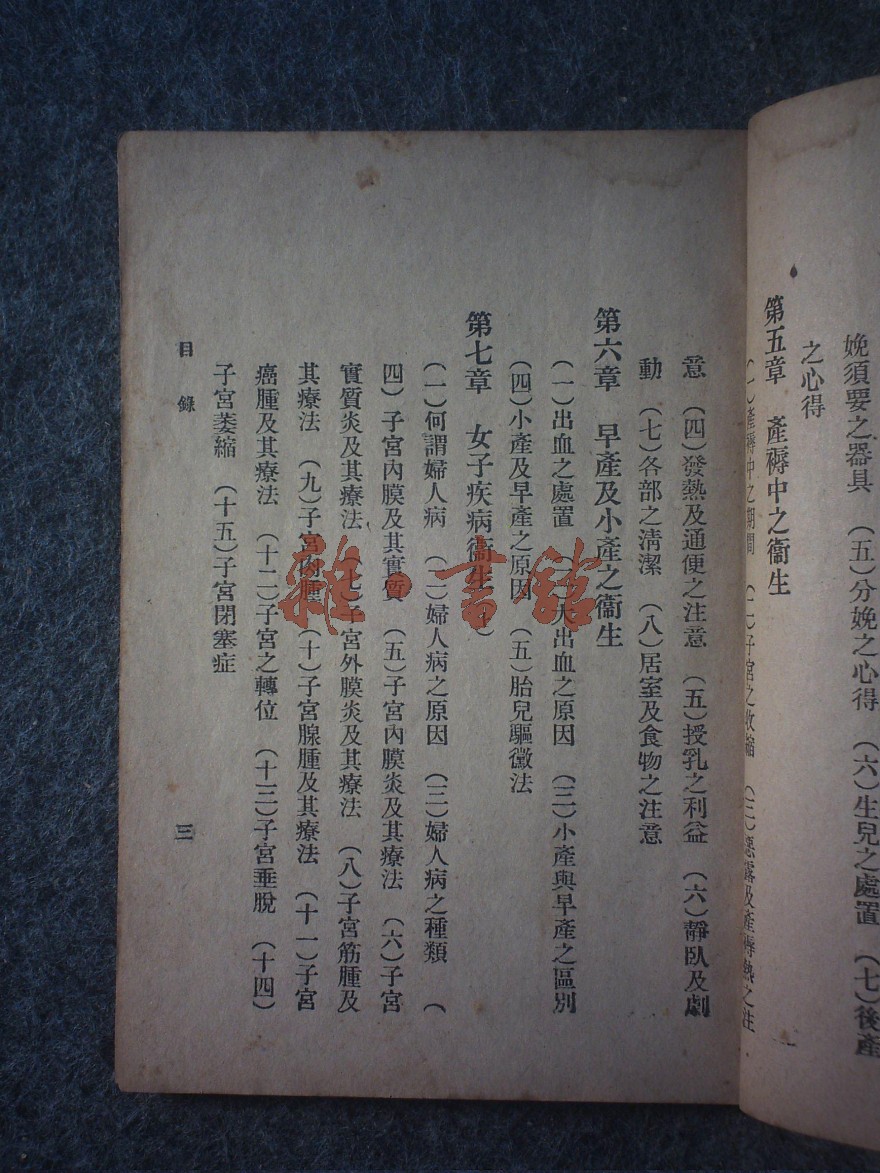 娩須要之器具　(五)分娩之心得　(六)生兒之處置　(七)後產
之心得
第五章　產褥中之衞生
(一)產褥中之期間　(二)子宮之收縮　(三)惡露及產褥熱之注
意　(四)發熱及通便之注意　(五)授乳之利益　(六)靜臥及劇
動　(七)各部之清潔　(八)居室及食物之注意
第六章　早產及小產之衞生
(一)出血之處置　(二)大出血之原因　(三)小產與早產之區別
(四)小產及早產之原因　(五)胎兒驅黴法
第七章　女子疾病衞生
(一)何謂婦人病　(二)婦人病之原因　(三)婦人病之種類　(
四)子宮內膜及其實質　(五)子宮內膜炎及其療法　(六)子宮
實質炎及其療法　(七)子宮外膜炎及其療法　(八)子宮筋腫及
其療法　(九)子宮肉腫　(十)子宮腺腫及其療法　(十一)子宮
癌腫及其療法　(十二)子宮之轉位　(十三)子宮垂脫　(十四)
子宮萎縮　(十五)子宮閉塞症
目錄
三
雜·書館